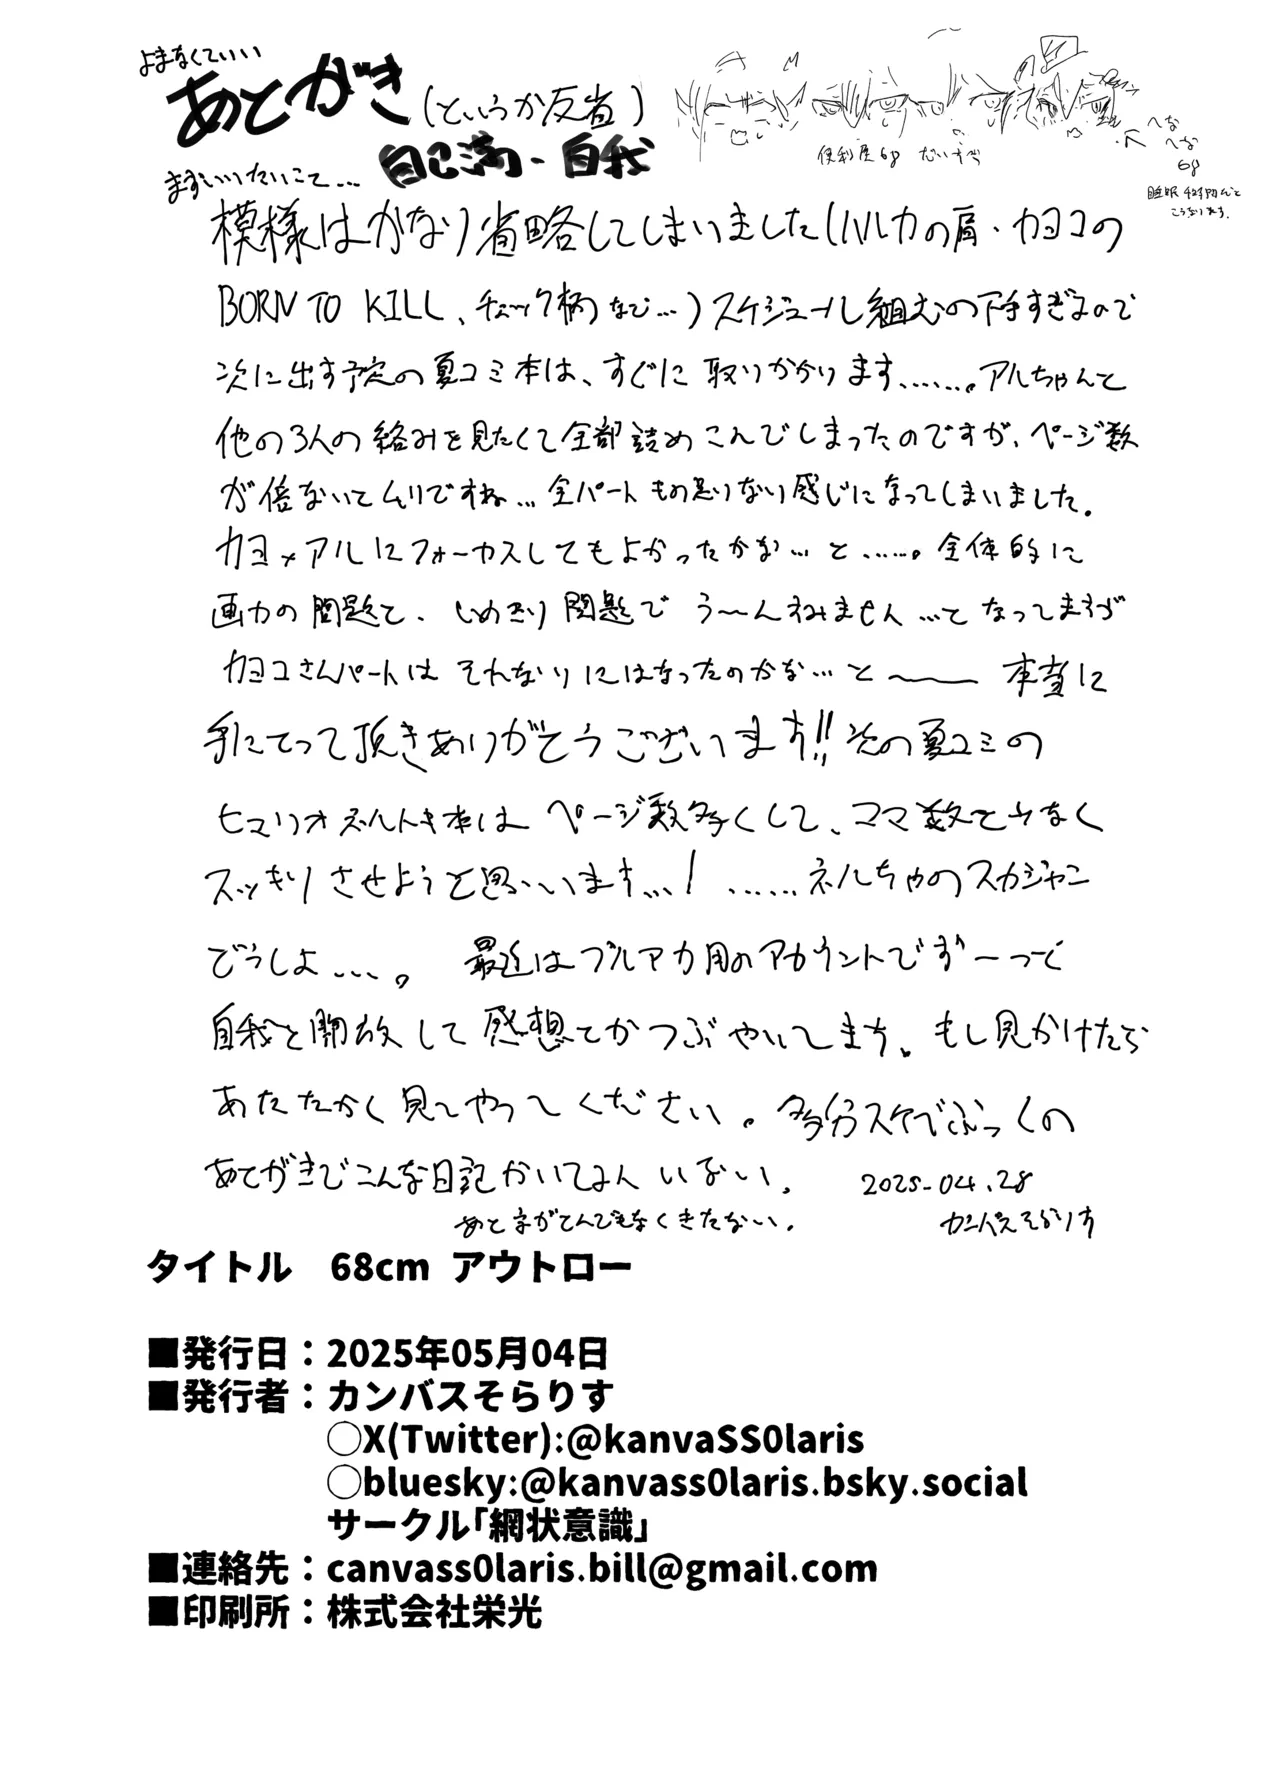 よまなくていい
あとがき(というか反省)
自己満・自我
まずいいたいこと…
便利屋68 だいすき
へな
へな
68
睡眠4時間だと
こうなります。
模様はかなり省略してしまいました(ハルカの肩・カヨコの
BORN TO KILL、チェック柄など…)スケジュール組むの下手すぎるので
次に出す予定の夏コミ本は、すぐに取りかかります……。アルちゃんと
他の3人の絡みを見たくて全部詰めこんでしまったのですが、ページ数
が倍ないとムリですね…全パートもの足りない感じになってしまいました。
カヨ×アルにフォーカスしてもよかったかな…と……。全体的に
画力の問題と、しめきり問題でう〜んすみません…となってますが
カヨコさんパートはそれなりにはなったのかな…と〜〜 本当に
手にとって頂きありがとうございます!!次の夏コミの
ヒマリオネルトキ本はページ数多くして、コマ数を少なく
スッキリさせようと思います…! ……ネルちゃのスカジャン
どうしよ…。 最近はブルアカ用のアカウントでずーっと
自我を開放して感想とかつぶやいてます。もし見かけたら
あたたかく見てやってください。多分スケベぶっくの
あとがきでこんな日記かいてる人いない。 2025.04.28
あと字がとんでもなくきたない。 カンバスそらりす
タイトル 68cm アウトロー
■発行日:2025年05月04日
■発行者:カンバスそらりす
○X(Twitter):@kanvaSS0laris
○bluesky:@kanvass0laris.bsky.social
サークル「網状意識」
■連絡先:canvass0laris.bill@gmail.com
■印刷所:株式会社栄光